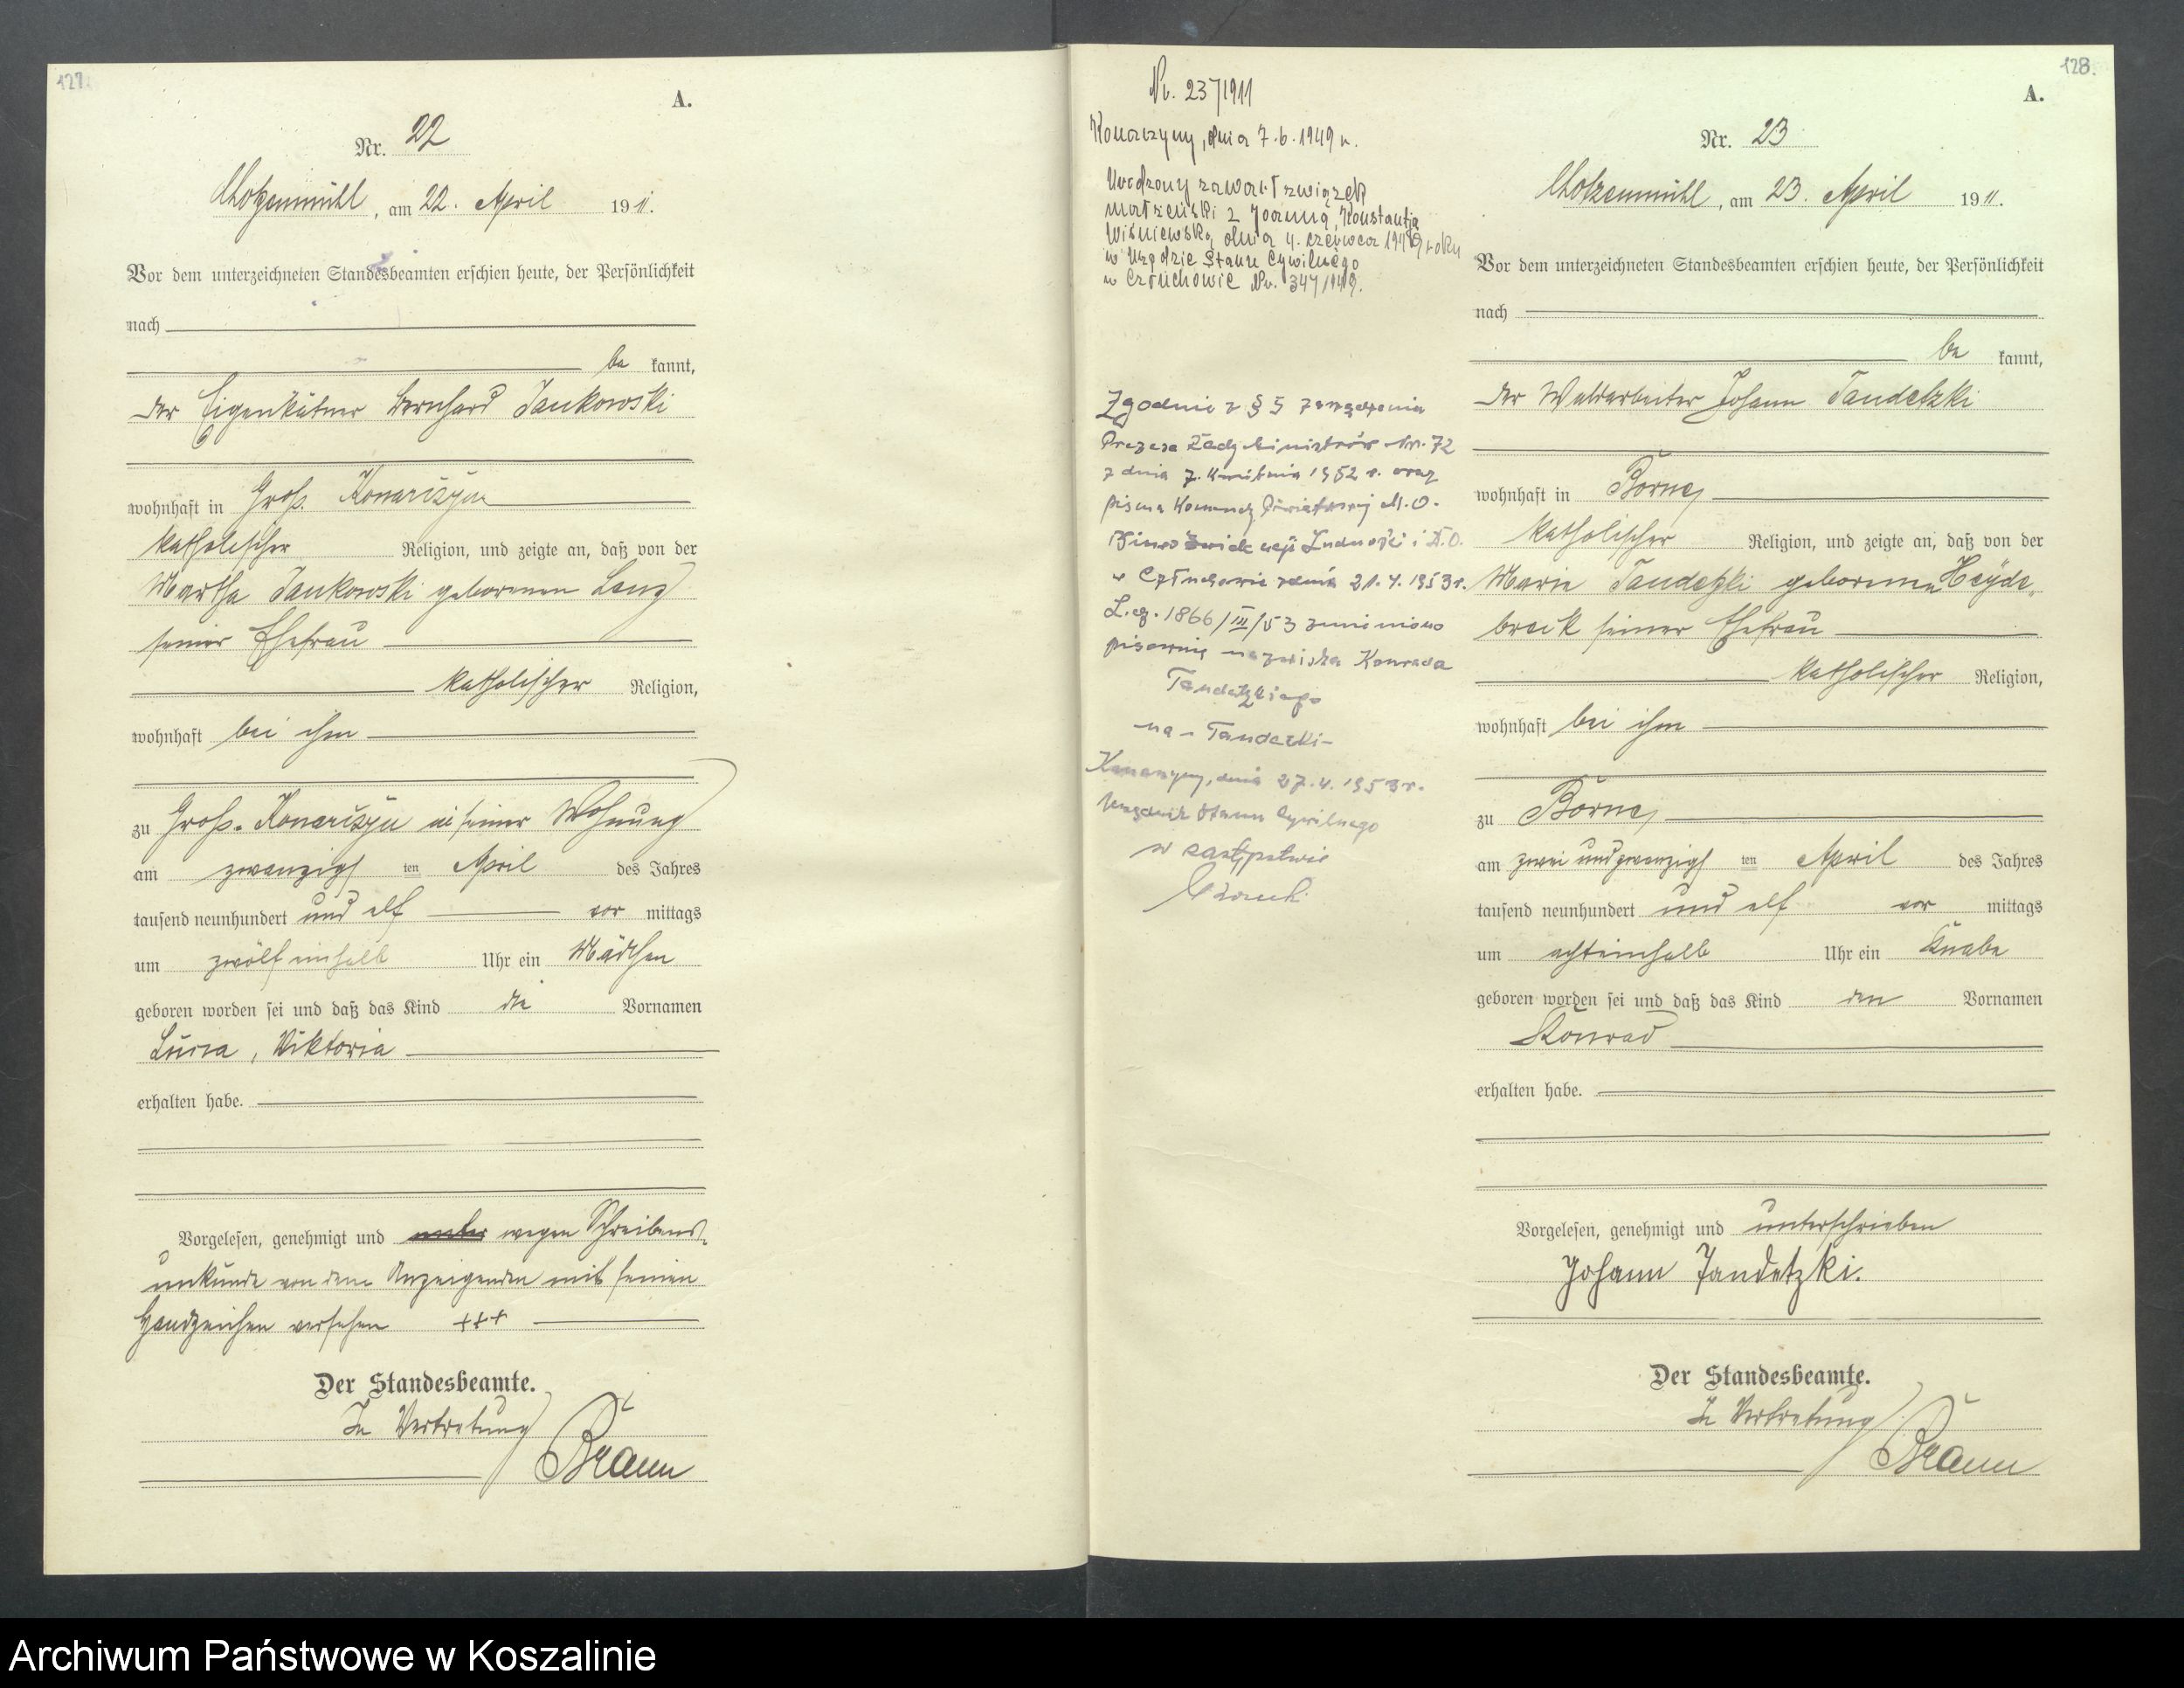 127.
A.
Nr. 22
Chotzenmühl, am 22. April 1911.
Vor dem unterzeichneten Standesbeamten erschien heute, der Persönlichkeit
nach
be kannt,
der Eigenkätner Bernhard Jankowski
wohnhaft in Groß. Konarczyn
katholischer Religion, und zeigte an, daß von der
Martha Jankowski geborenen Lenz
seiner Ehefrau
katholischer Religion,
wohnhaft bei ihm
zu Groß-Konarczyn in seiner Wohnung
am zwanzigsten April des Jahres
tausend neunhundert und elf vor mittags
um zwölfeinhalb Uhr ein Mädchen
geboren worden sei und daß das Kind die Vornamen
Lucia, Viktoria
erhalten habe.
Vorgelesen, genehmigt und wegen Schreibens-
unkunde von dem Anzeigenden mit seinen
Handzeichen versehen +++
Der Standesbeamte.
In Vertretung
Braun
Nr. 23/1911
Konarzyny, dnia 7.6.1949 r.
Urodzony zawarł związek
małżeński z Joanną, Konstantją
Wiśniewską dnia 4. czerwca 1949 roku
w Urzędzie Stanu Cywilnego
w Człuchowie Nr. 347/1949.
Zgodnie z § 5 zarządzenia
Prezesa Rady Ministrów Nr. 72
z dnia 7. kwietnia 1952 r. oraz
pisma Komendy Powiatowej M.O.
Ludności i D.O.
w Człuchowie z dnia 21.4.1953 r.
L.dz. 1866/III/53 zmieniono
pisownię nazwiska Konrada
Tandetzkiego
na - Tandecki -
Konarzyny, dnia 27.4.1953 r.
Urzędnik Stanu Cywilnego
w zastępstwie
128.
A.
Nr. 23
Chotzenmühl, am 23. April 1911.
Vor dem unterzeichneten Standesbeamten erschien heute, der Persönlichkeit
nach
be kannt,
der Waldarbeiter Johann Tandetzki
wohnhaft in Börnen
katholischer Religion, und zeigte an, daß von der
Marie Tandetzki geborenen Heyde-
breck seiner Ehefrau
katholischer Religion,
wohnhaft bei ihm
zu Börnen
am zwei und zwanzigsten April des Jahres
tausend neunhundert und elf vor mittags
um achteinhalb Uhr ein Knabe
geboren worden sei und daß das Kind den Vornamen
Konrad
erhalten habe.
Vorgelesen, genehmigt und unterschrieben
Johann Tandetzki.
Der Standesbeamte.
In Vertretung
Braun
Archiwum Państwowe w Koszalinie